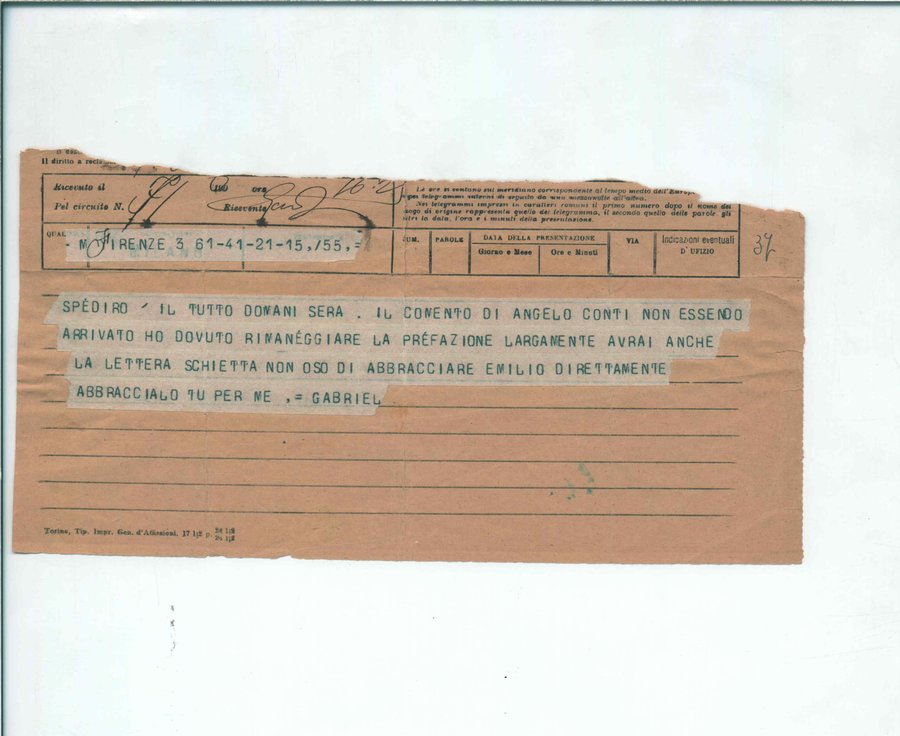 Il diritto a recla
Ricevuto il 190 ora
Pel circuito N. Ricevente
Le ore si contano sul meridiano corrispondente al tempo medio dell'Europa
pei telegrammi interni di seguito da una mezzanotte all'altra.
Nei telegrammi impressi in caratteri romani il primo numero dopo il nome del
luogo di origine rappresenta quello del telegramma, il secondo quello delle parole gli
altri la data, l'ora e i minuti della presentazione.
QUAL
NUM. PAROLE DATA DELLA PRESENTAZIONE VIA Indicazioni eventuali
Giorno e Mese Ore e Minuti D'UFIZIO
37
- M FIRENZE 3 61-41-21-15,/55,=
MILANO
SPÉDIRO ' IL TUTTO DOMANI SERA . IL COMENTO DI ANGELO CONTI NON ESSENDO
ARRIVATO HO DOVUTO RIMANÉGGIARE LA PRÉFAZIONE LARGAMENTE AVRAI ANCHE
LA LETTERA SCHIETTA NON OSO DI ABBRACCIARE EMILIO DIRETTAMENTE
ABBRACCIALO TU PER ME .= GABRIEL
Torino, Tip. Impr. Gen. d'Affissioni, 17 1|2 p.